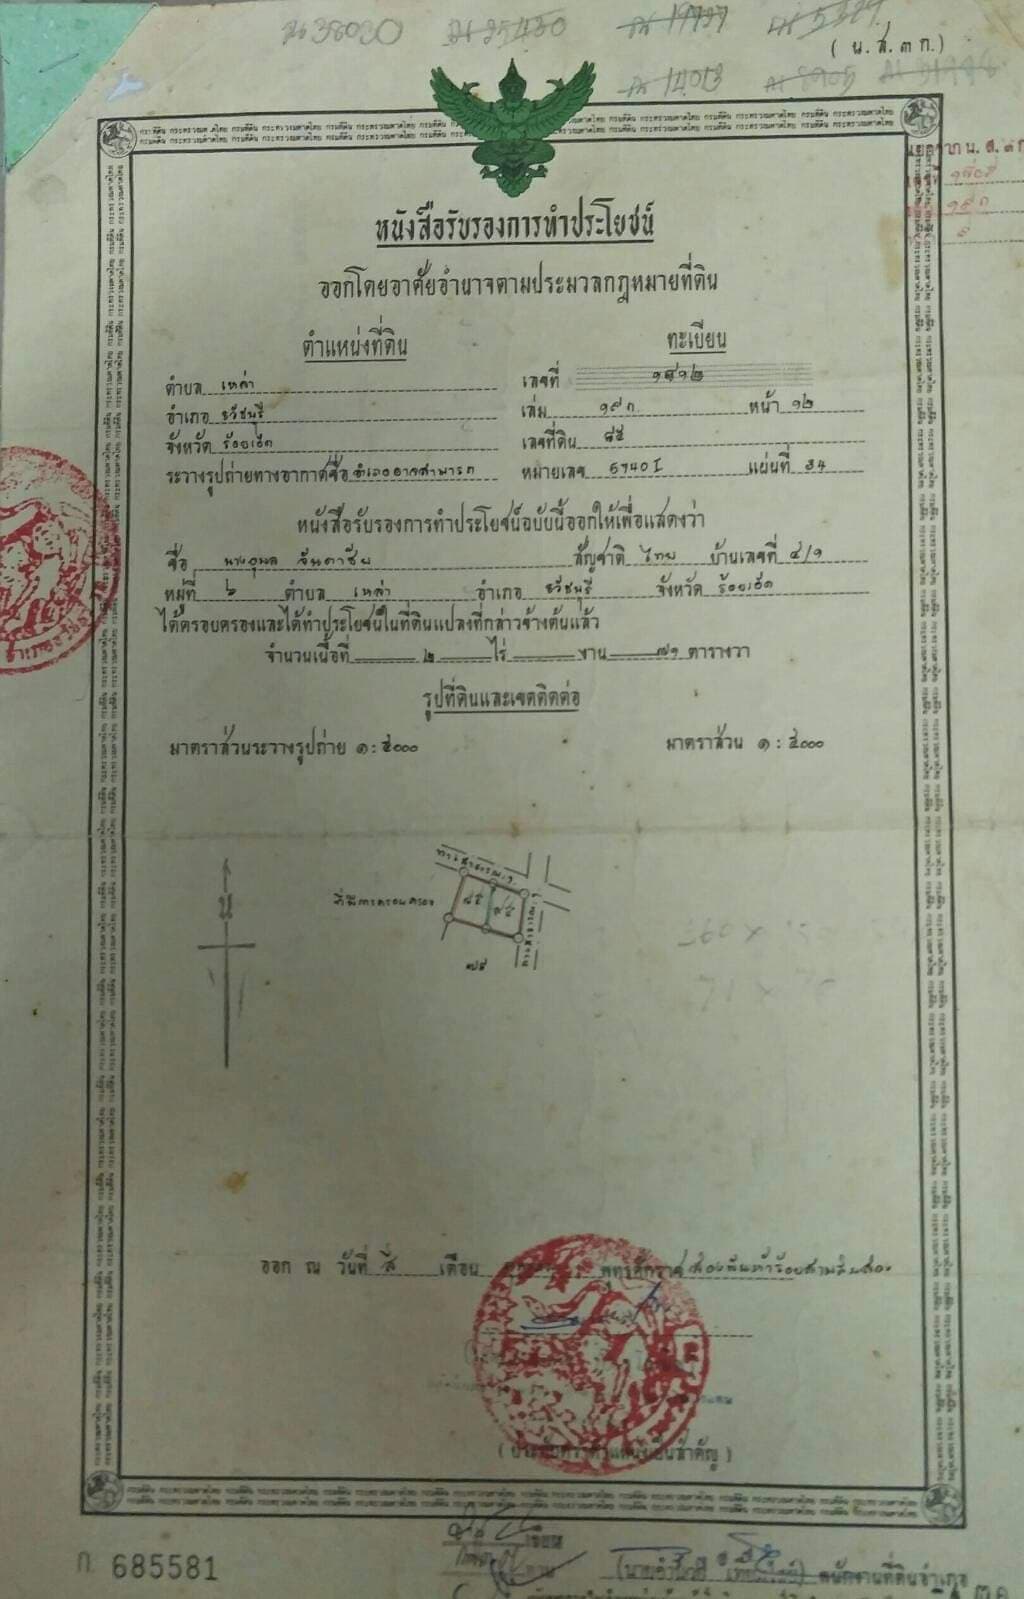 น 38030 น 25430 น 19727
( น.ส.๓ ก.)
น 14013
หนังสือรับรองการทำประโยชน์
ออกโดยอาศัยอำนาจตามประมวลกฎหมายที่ดิน
ตำแหน่งที่ดิน ทะเบียน
ตำบล เหล่า เลขที่ ๑๕๑๒
อำเภอ ธวัชบุรี เล่ม ๑๙ก หน้า ๑๒
จังหวัด ร้อยเอ็ด เลขที่ดิน ๘๕
ระวางรูปถ่ายทางอากาศชื่อ อำเภออาจสามารถ หมายเลข 5740 I แผ่นที่ 34
หนังสือรับรองการทำประโยชน์ฉบับนี้ออกให้เพื่อแสดงว่า
ชื่อ นาง จันดาชัย สัญชาติ ไทย บ้านเลขที่ ๔/๑
หมู่ที่ ๖ ตำบล เหล่า อำเภอ ธวัชบุรี จังหวัด ร้อยเอ็ด
ได้ครอบครองและได้ทำประโยชน์ในที่ดินแปลงที่กล่าวข้างต้นแล้ว
จำนวนเนื้อที่ ๒ ไร่ งาน ๗๑ ตารางวา
รูปที่ดินและเขตติดต่อ
มาตราส่วนระวางรูปถ่าย ๑ : ๕๐๐๐ มาตราส่วน ๑ : ๕๐๐๐
ทางสาธารณะ
ที่มีการครอบครอง ๘๕
ทางสาธารณะ
น
ออก ณ วันที่ สี่ เดือน พุทธศักราช สองพันห้าร้อยสามสิบสอง
( ประทับตราตำแหน่งเป็นสำคัญ )
เขียน
ทาน
พนักงานที่ดินอำเภอ
ก 685581